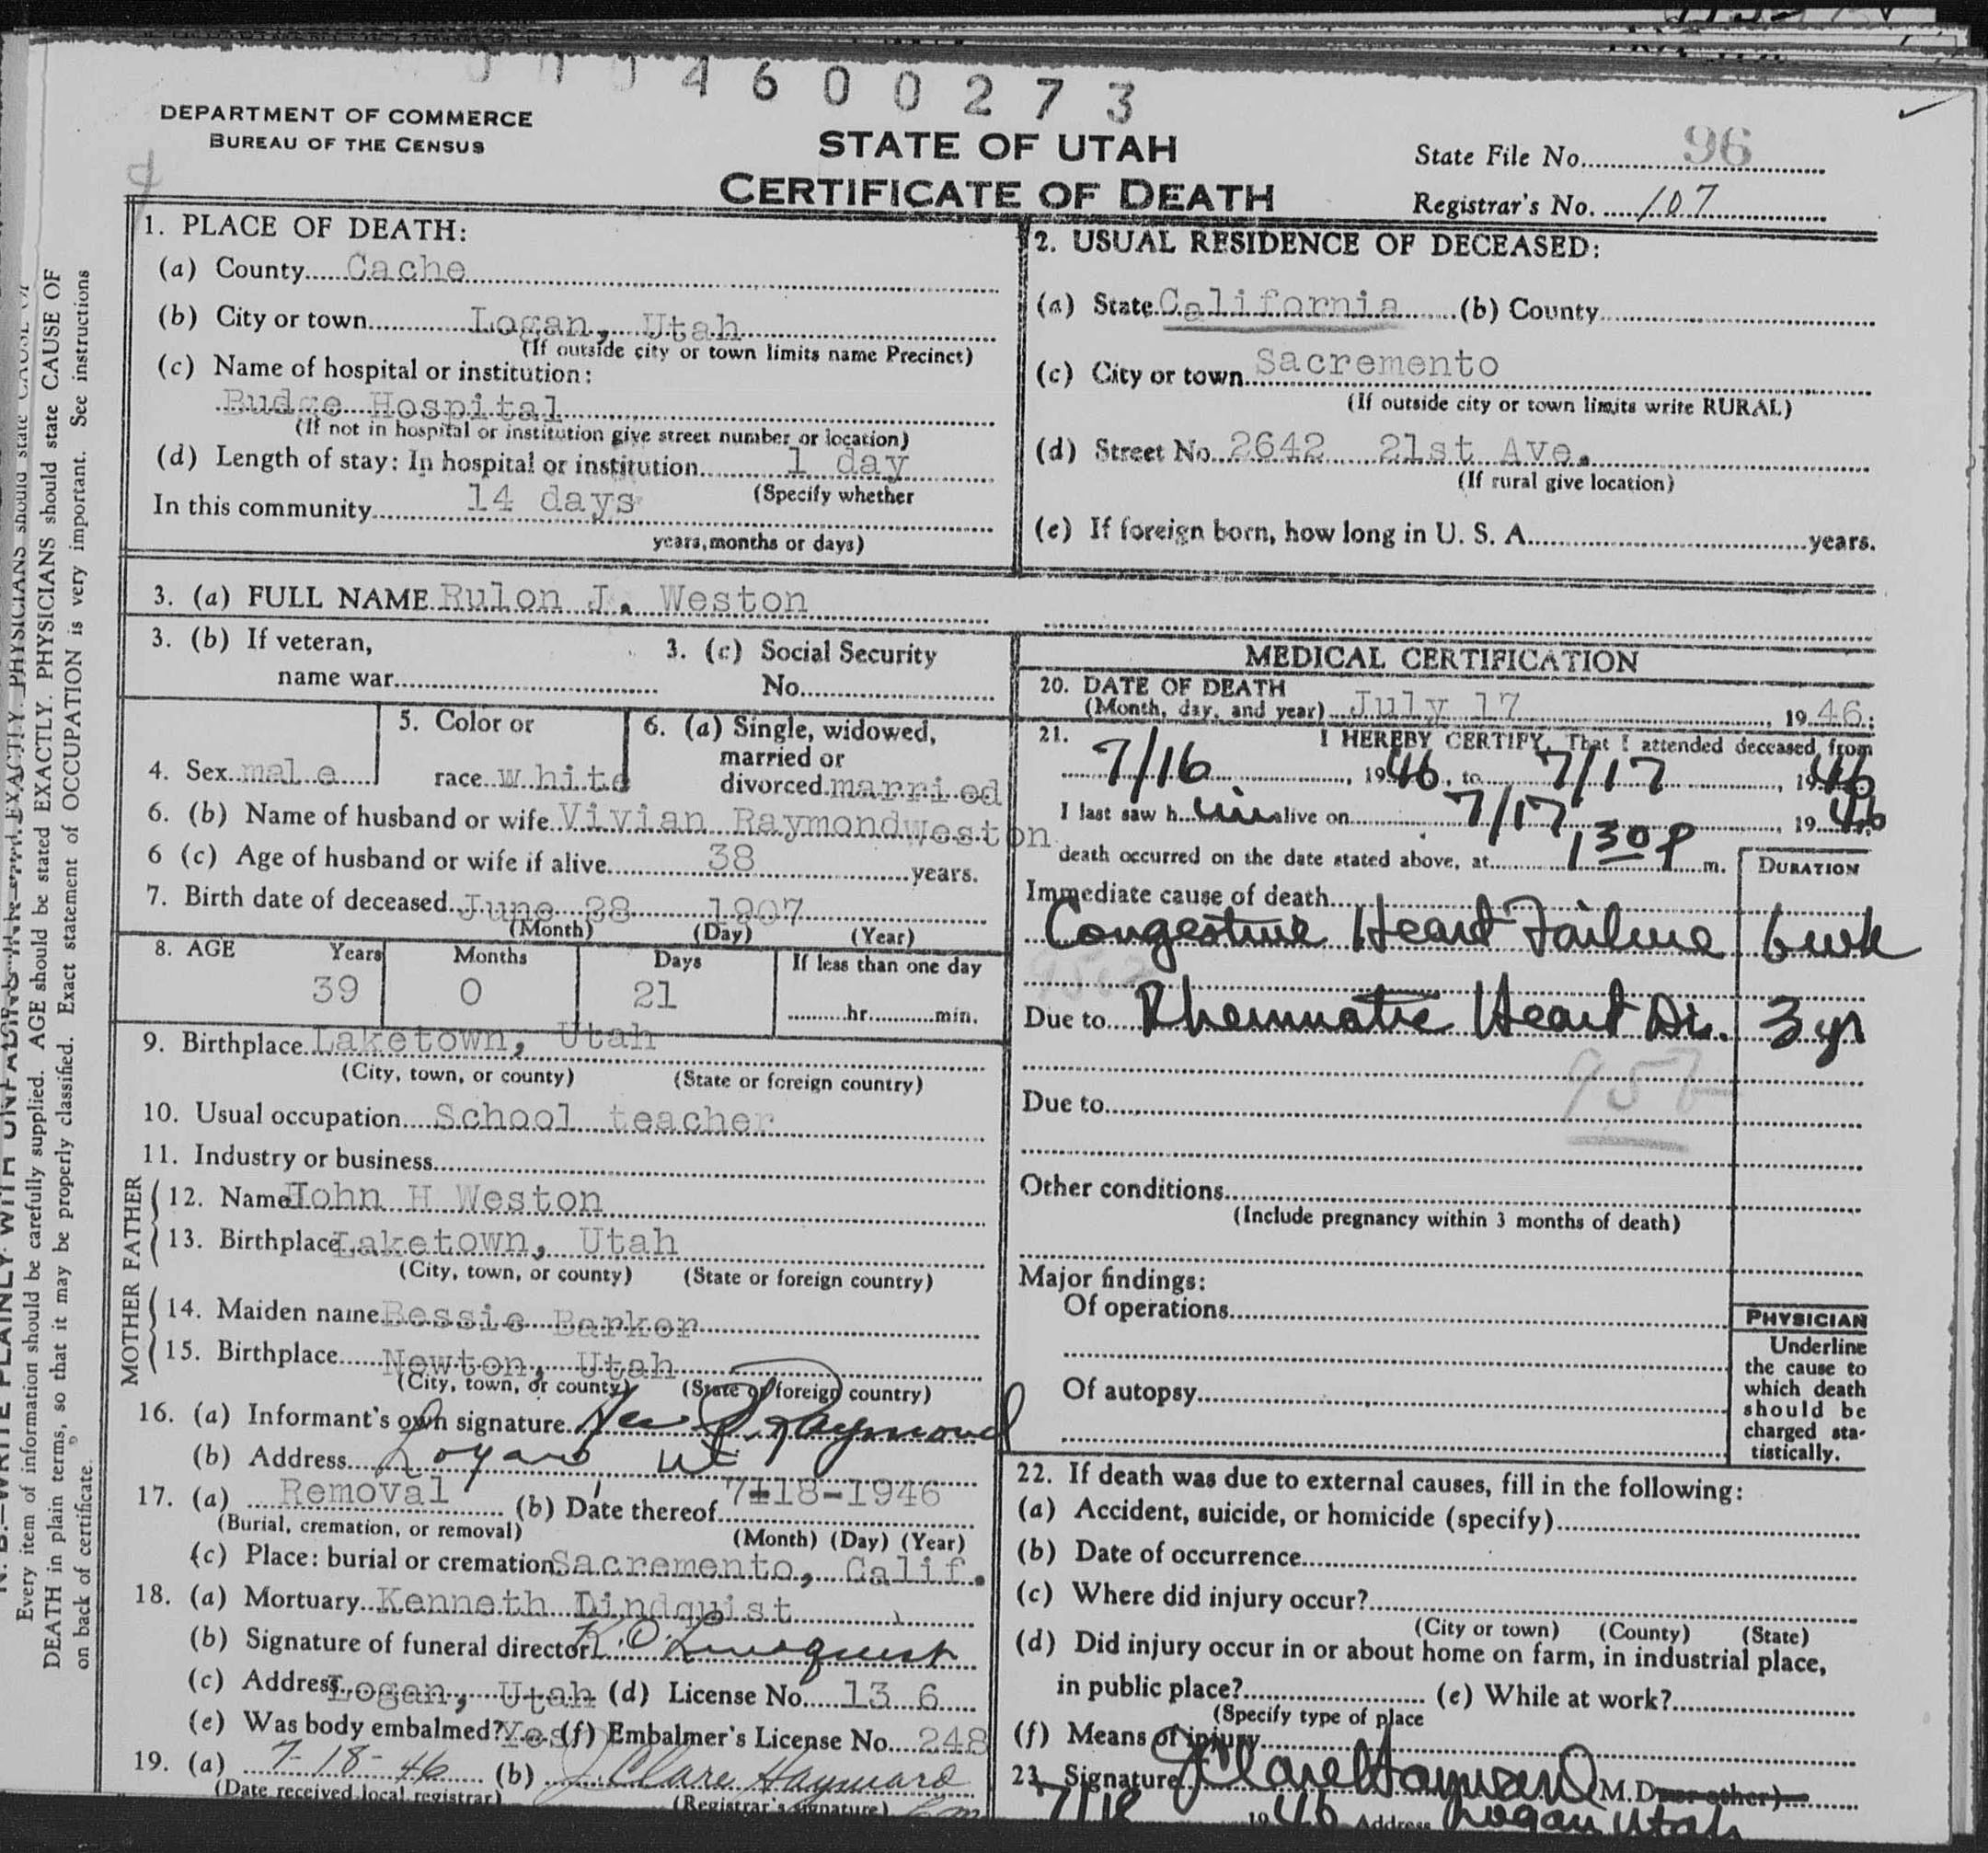 4600273
DEPARTMENT OF COMMERCE
BUREAU OF THE CENSUS
STATE OF UTAH
CERTIFICATE OF DEATH
State File No. 96
Registrar's No. 107
1. PLACE OF DEATH:
(a) County Cache
(b) City or town Logan, Utah
(If outside city or town limits name Precinct)
(c) Name of hospital or institution:
Budge Hospital
(If not in hospital or institution give street number or location)
(d) Length of stay: In hospital or institution 1 day
In this community 14 days (Specify whether
years, months or days)
2. USUAL RESIDENCE OF DECEASED:
(a) State California (b) County
(c) City or town Sacremento
(If outside city or town limits write RURAL)
(d) Street No. 2642 21st Ave.
(If rural give location)
(e) If foreign born, how long in U. S. A. years.
3. (a) FULL NAME Rulon J. Weston
3. (b) If veteran,
name war
3. (c) Social Security
No.
4. Sex male
5. Color or
race white
6. (a) Single, widowed,
married or
divorced married
6. (b) Name of husband or wife Vivian Raymond Weston
6 (c) Age of husband or wife if alive 38 years.
7. Birth date of deceased June 28 1907
(Month) (Day) (Year)
8. AGE Years Months Days If less than one day
39 0 21 hr. min.
9. Birthplace Laketown, Utah
(City, town, or county) (State or foreign country)
10. Usual occupation School teacher
11. Industry or business
FATHER
12. Name John H Weston
13. Birthplace Laketown, Utah
(City, town, or county) (State or foreign country)
MOTHER
14. Maiden name Bessie Barker
15. Birthplace Newton, Utah
(City, town, or county) (State or foreign country)
16. (a) Informant's own signature Raymond
(b) Address Logan, Ut
17. (a) Removal (b) Date thereof 7-18-1946
(Burial, cremation, or removal) (Month) (Day) (Year)
(c) Place: burial or cremation Sacremento, Calif.
18. (a) Mortuary Kenneth Lindquist
(b) Signature of funeral director K.O. Lindquist
(c) Address Logan, Utah (d) License No. 13 6
(e) Was body embalmed? Yes (f) Embalmer's License No. 248
19. (a) 7-18-46 (b) J Clare Hayward
(Date received local registrar) (Registrar's signature)
MEDICAL CERTIFICATION
20. DATE OF DEATH
(Month, day, and year) July 17, 1946;
21. I HEREBY CERTIFY, That I attended deceased from
7/16, 1946, to 7/17, 1946
I last saw him alive on 7/17, 1946
death occurred on the date stated above, at 1 30 P m.
DURATION
Immediate cause of death
Congestive Heart Failure 6 wk
Due to Rheumatic Heart Dis. 3 yr
Due to
Other conditions
(Include pregnancy within 3 months of death)
Major findings:
Of operations
Of autopsy
PHYSICIAN
Underline
the cause to
which death
should be
charged sta-
tistically.
22. If death was due to external causes, fill in the following:
(a) Accident, suicide, or homicide (specify)
(b) Date of occurrence
(c) Where did injury occur?
(City or town) (County) (State)
(d) Did injury occur in or about home on farm, in industrial place,
in public place? (e) While at work?
(Specify type of place
(f) Means of injury
23. Signature J Clare Hayward (M.D. or other)
7/18 1946 Address Logan Utah
N. B.—WRITE PLAINLY WITH UNFADING INK
Every item of information should be carefully supplied. AGE should be stated EXACTLY. PHYSICIANS should state CAUSE OF
DEATH in plain terms, so that it may be properly classified. Exact statement of OCCUPATION is very important. See instructions
on back of certificate.